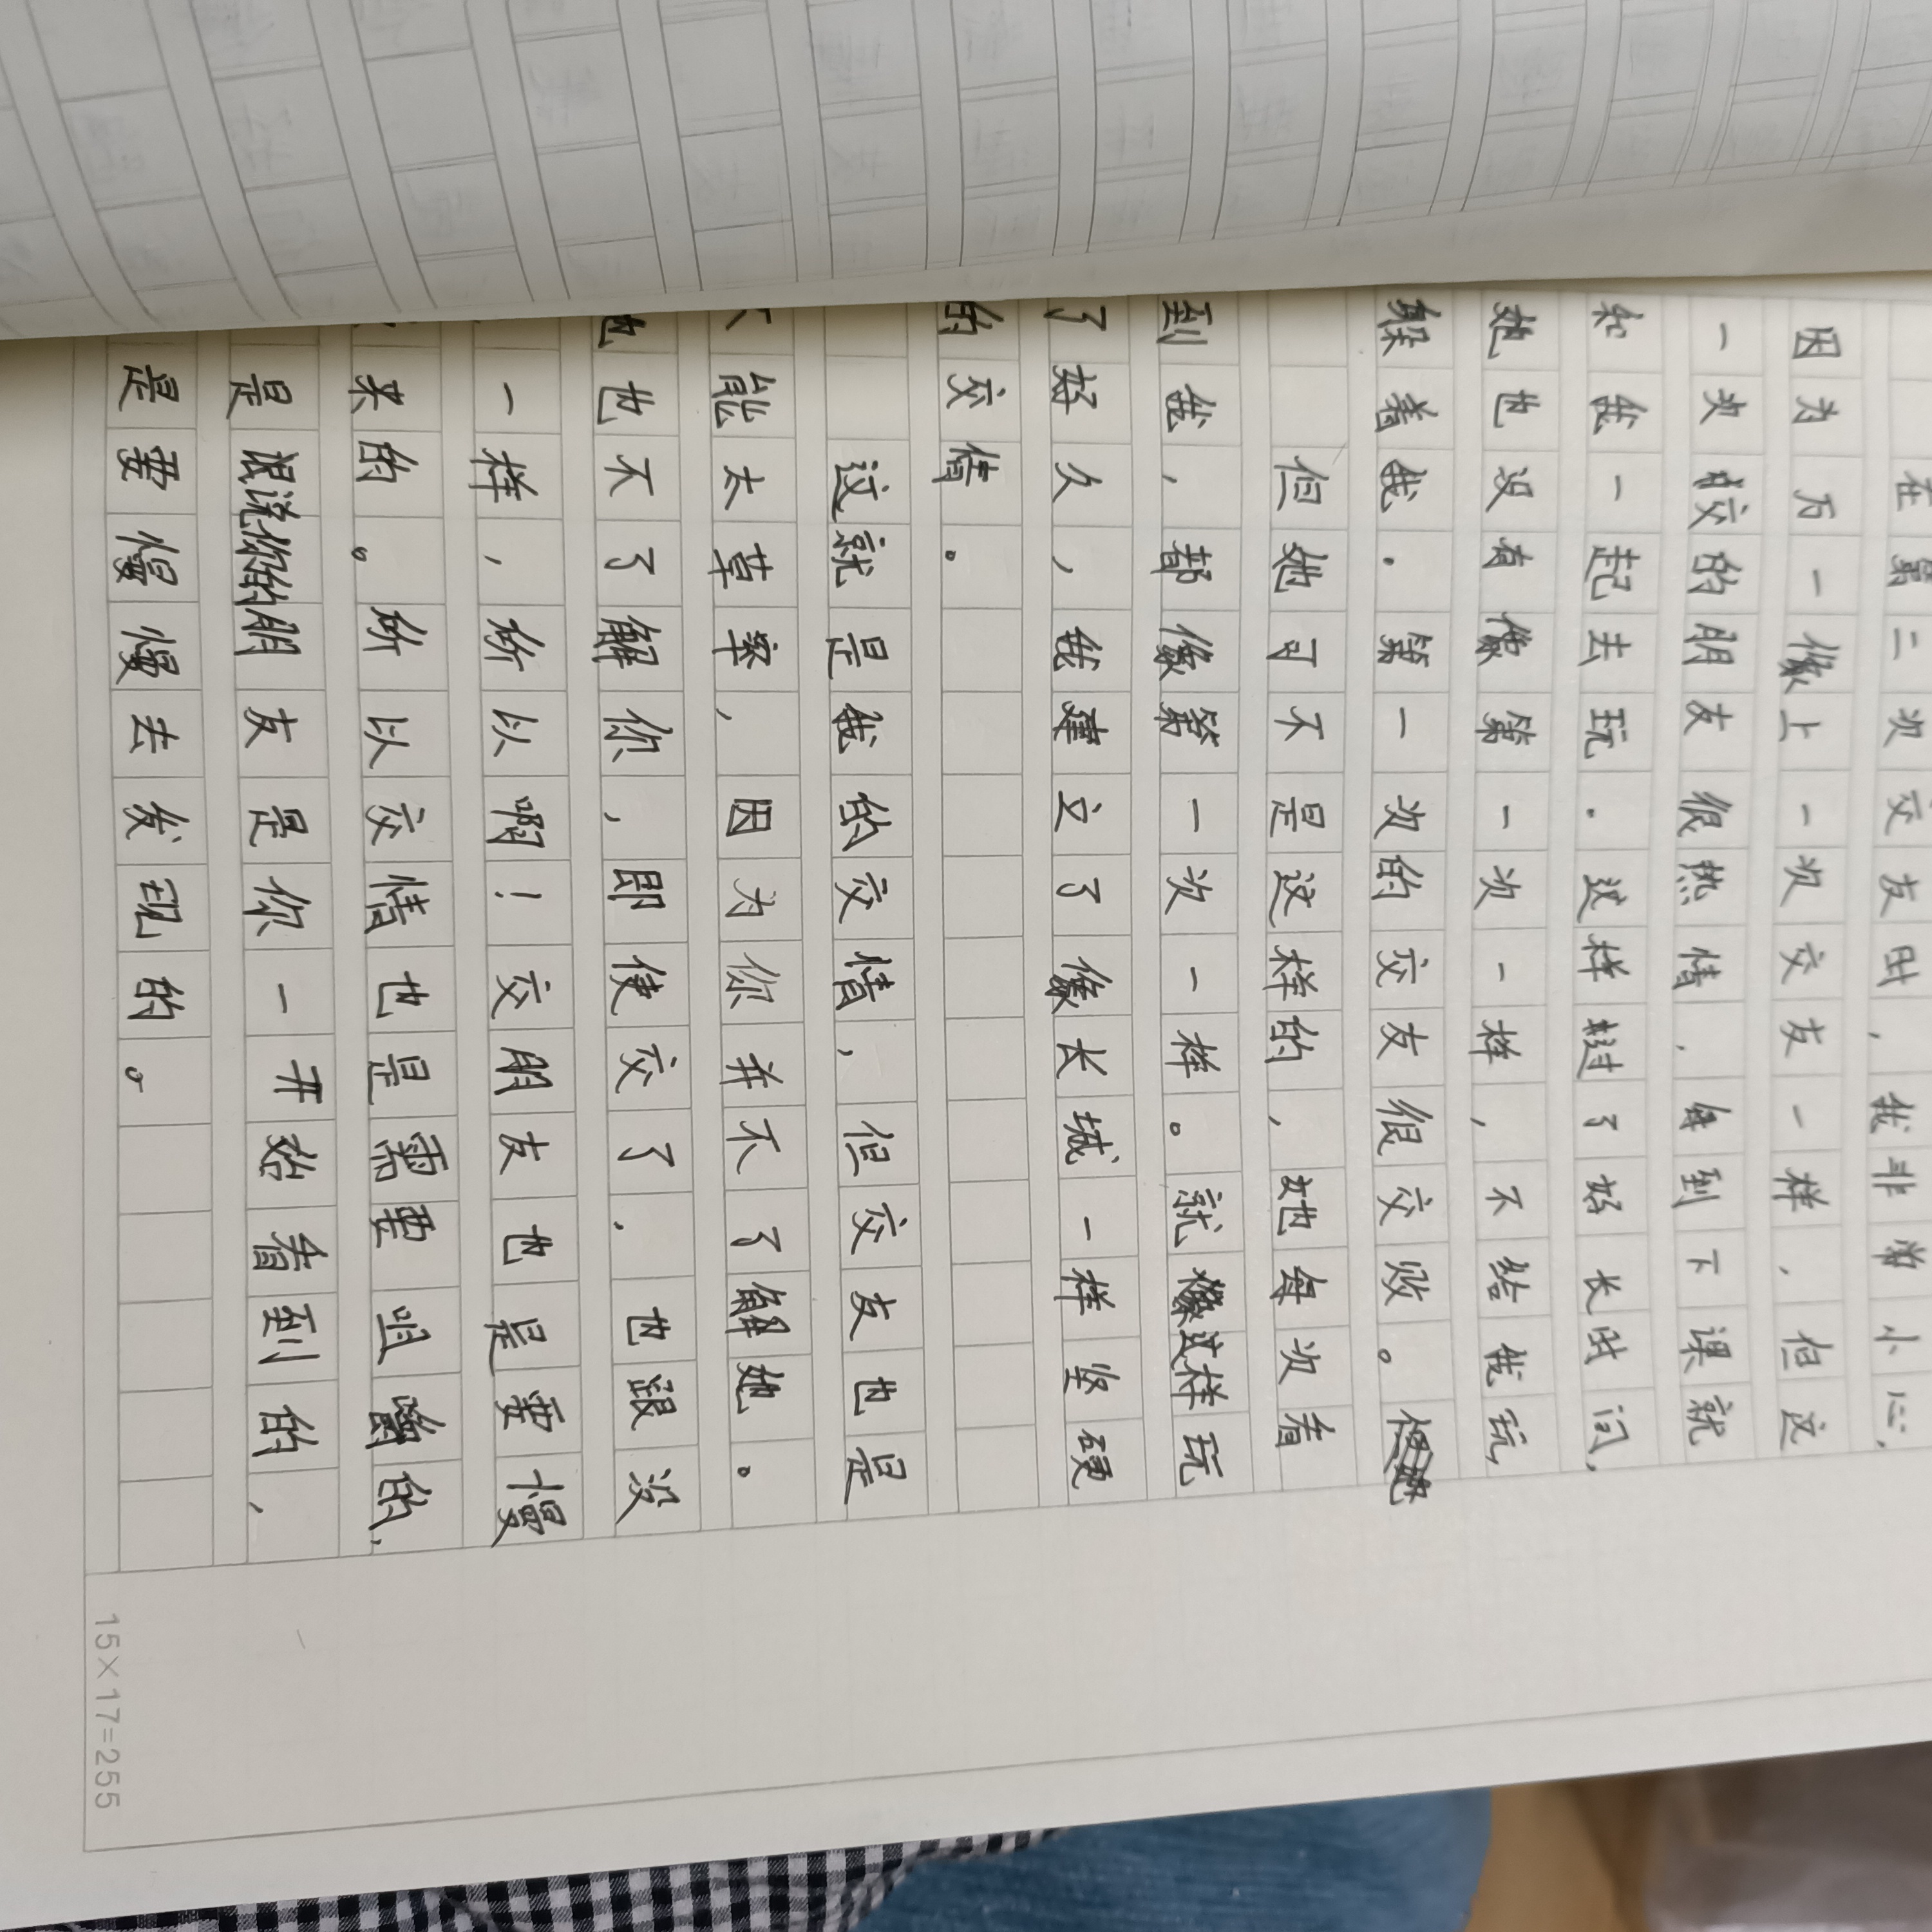 在第二次交友时，我非常小心，
因为万一像上一次交友一样，但这
一次交的朋友很热情，每到下课就
和我一起去玩．这样过了好长时间，
她也没有像第一次一样，不给我玩，
躲着我．第一次的交友很交败。
但她可不是这样的，她每次看
到我，都像第一次一样。就像这样玩
了好久，我建立了像长城一样坚硬
的交情。
这就是我的交情，但交友也是
不能太草率，因为你并不了解她。
她也不了解你，即使交了．也跟没
一样，所以啊！交朋友也是要慢
来的。所以交情也是需要咀嚼的，
是说你的朋友是你一开始看到的，
是要慢慢去发现的。
15×17=255